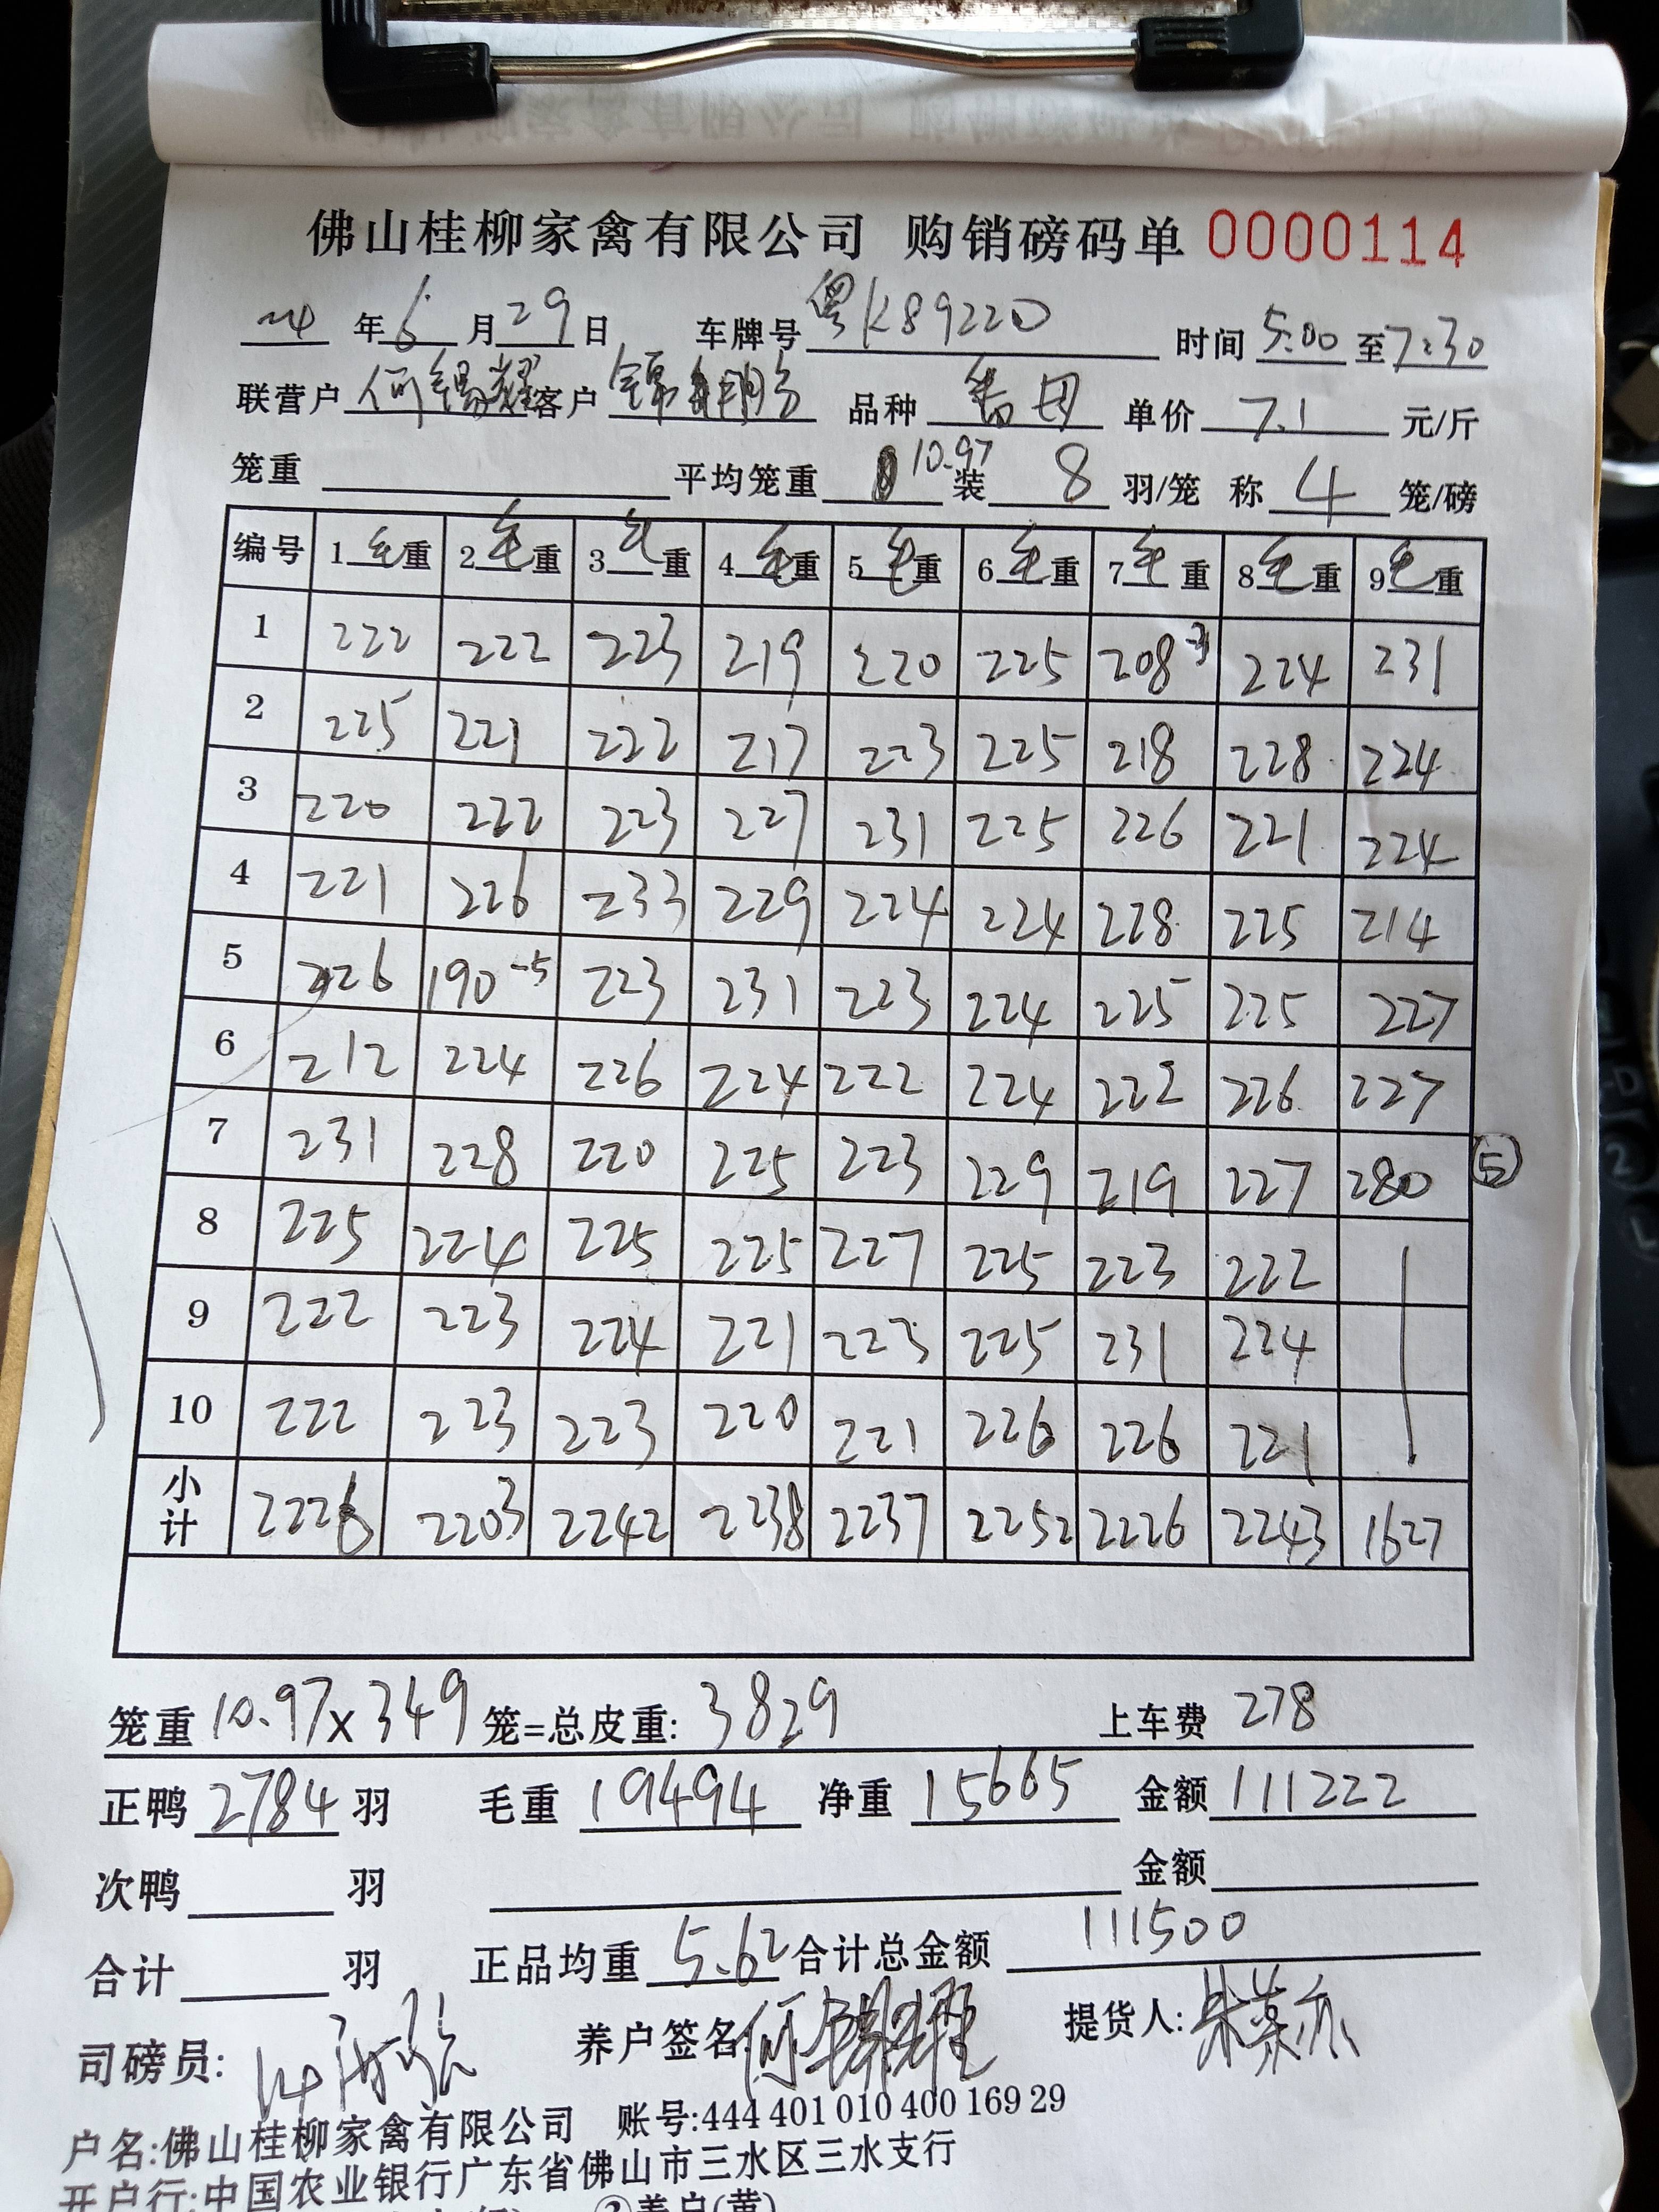 佛山桂柳家禽有限公司 购销磅码单 0000114
24 年 6 月 29 日 车牌号 粤K89220 时间 5:00 至 7:30
联营户 何锡耀 客户 锦翔 品种 单价 7.1 元/斤
笼重 平均笼重 10.97 装 8 羽/笼 称 4 笼/磅
编号 1毛重 2毛重 3毛重 4毛重 5毛重 6毛重 7毛重 8毛重 9毛重
1 222 222 223 219 220 225 208-3 224 231
2 225 221 222 217 223 225 218 228 224
3 220 222 223 227 231 225 226 221 224
4 221 226 233 229 224 224 228 225 214
5 226 190-5 223 231 223 224 225 225 227
6 212 224 226 224 222 224 222 226 227
7 231 228 220 225 223 229 219 227 280 ⑤
8 225 224 225 225 227 225 223 222
9 222 223 224 221 223 225 231 224
10 222 223 223 220 221 226 226 221
小计 2226 2203 2242 2238 2237 2252 2226 2243 1627
笼重 10.97 x 349 笼=总皮重: 3829 上车费 278
正鸭 2784 羽 毛重 19494 净重 15665 金额 111222
次鸭 羽 金额
合计 羽 正品均重 5.62 合计总金额 111500
司磅员: 养户签名: 何锡耀 提货人:
户名:佛山桂柳家禽有限公司 账号:444 401 010 400 169 29
开户行:中国农业银行广东省佛山市三水区三水支行
②养户(黄)